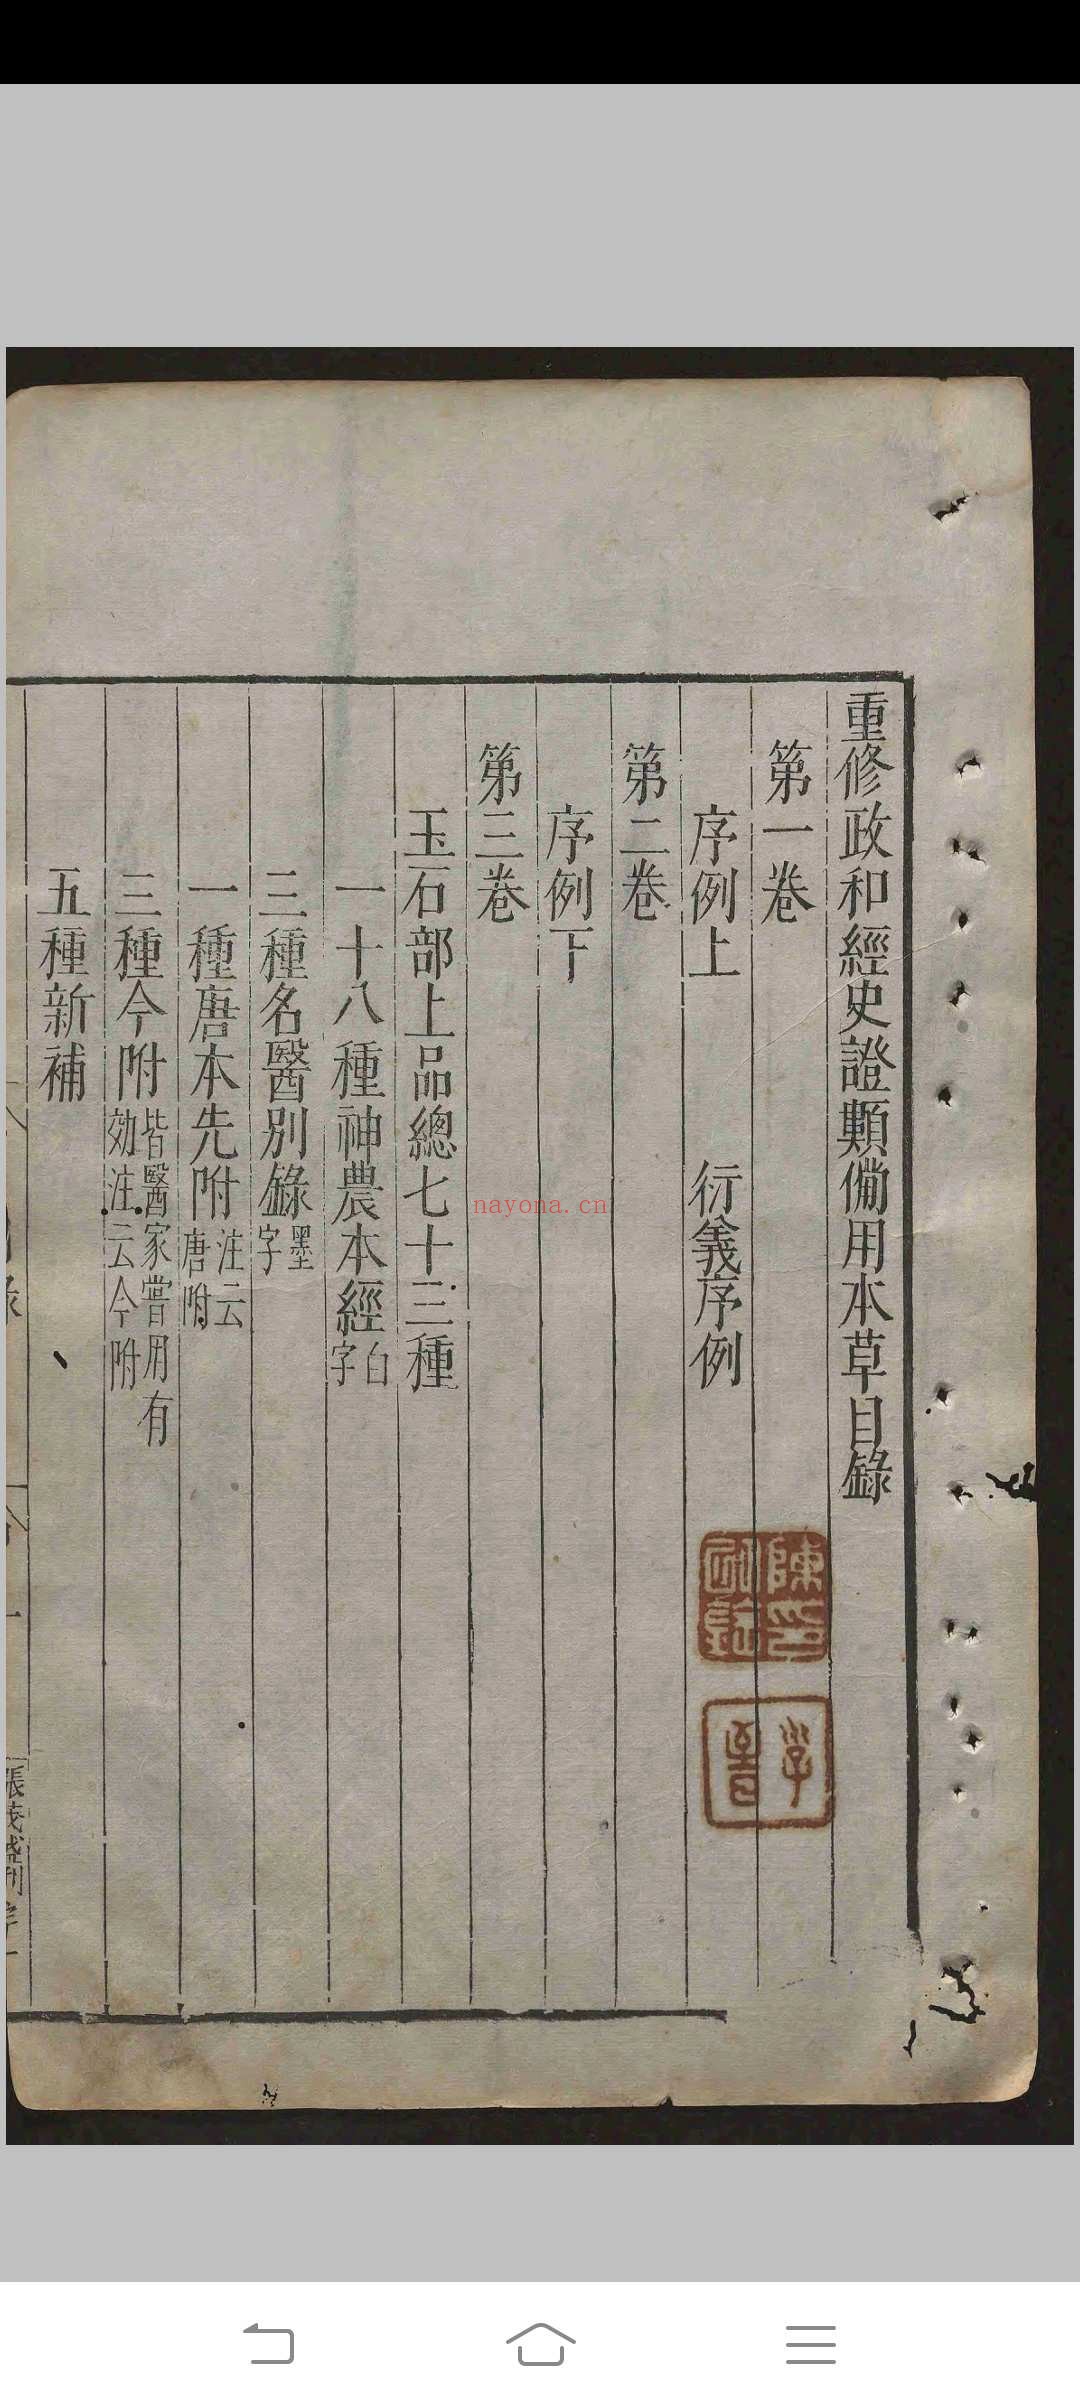 重修政和經史證類備用本草目錄
第一卷
序例上　衍義序例
第二卷
序例下
第三卷
玉石部上品總七十三種
一十八種神農本經白字
三種名醫別錄墨字
一種唐本先附注云唐附
三種今附皆醫家嘗用有効注云今附
五種新補
張茂盛刊
nayona.cn